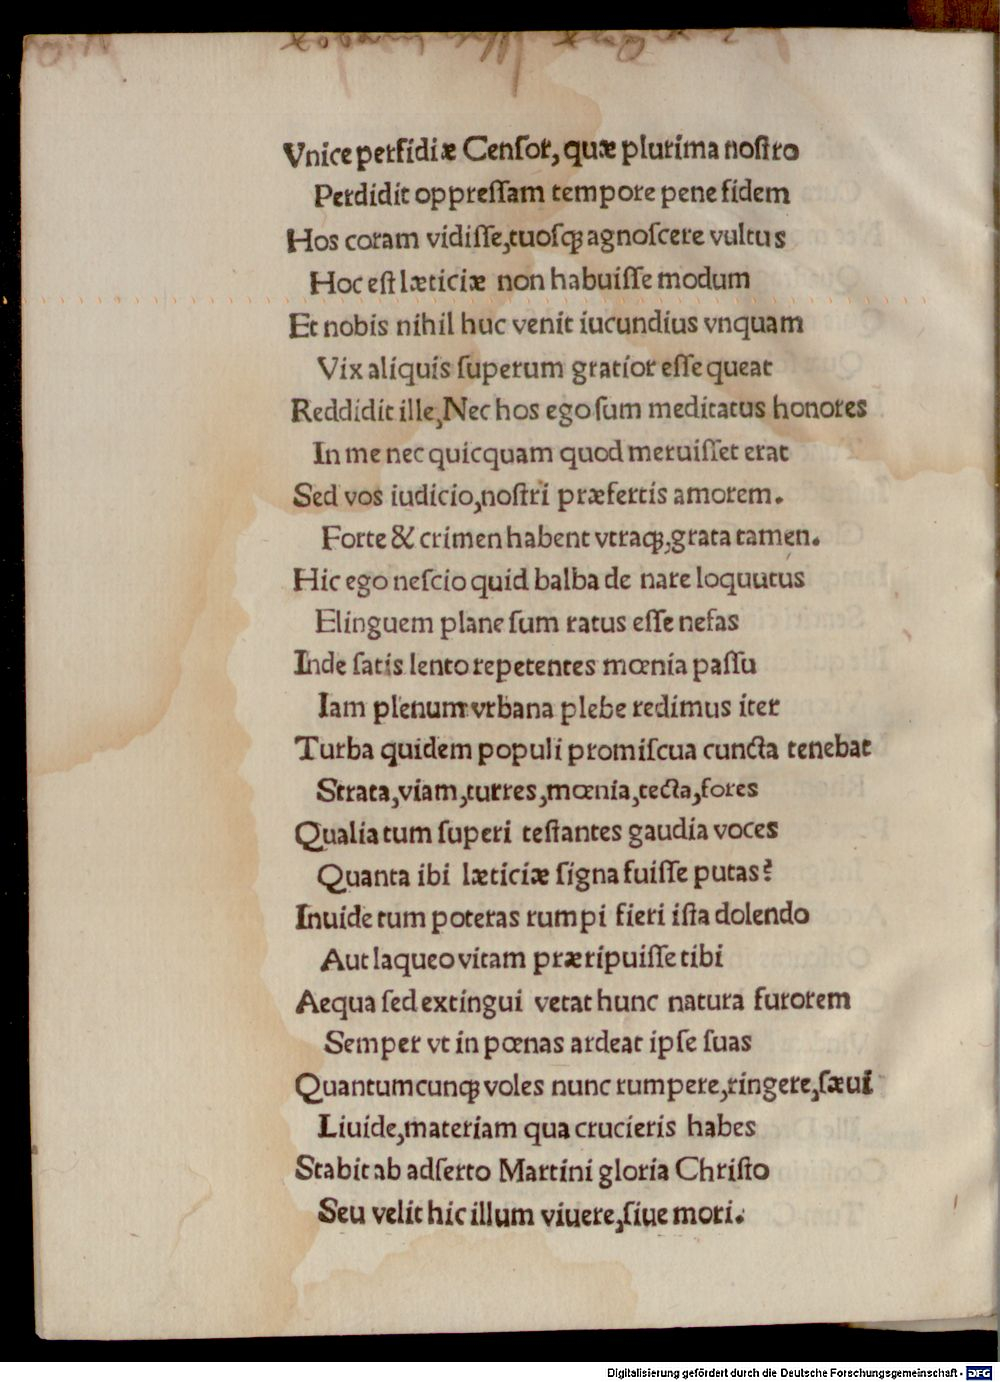 Vnice perfidiæ Cenſor, quæ plurima noſtro
Perdidit oppreſſam tempore pene fidem
Hos coram vidiſſe, tuoſqꝫ agnoſcere vultus
Hoc eſt læticiæ non habuiſſe modum
Et nobis nihil huc venit iucundius vnquam
Vix aliquis ſuperum gratior eſſe queat
Reddidit ille, Nec hos ego ſum meditatus honores
In me nec quicquam quod meruiſſet erat
Sed vos iudicio, noſtri præfertis amorem.
Forte & crimen habent vtraqꝫ, grata tamen.
Hic ego neſcio quid balba de nare loquutus
Elinguem plane ſum ratus eſſe nefas
Inde ſatis lento repetentes mœnia paſſu
Iam plenum vrbana plebe redimus iter
Turba quidem populi promiſcua cuncta tenebat
Strata, viam, turres, mœnia, tecta, fores
Qualia tum ſuperi teſtantes gaudia voces
Quanta ibi læticiæ ſigna fuiſſe putas?
Inuide tum poteras rumpi fieri iſta dolendo
Aut laqueo vitam præripuiſſe tibi
Aequa ſed extingui vetat hunc natura furorem
Semper vt in pœnas ardeat ipſe ſuas
Quantumcunqꝫ voles nunc rumpere, ringere, ſæui
Liuide, materiam qua crucieris habes
Stabit ab adſerto Martini gloria Chriſto
Seu velit hic illum viuere, ſiue mori.
Digitalisierung gefördert durch die Deutsche Forschungsgemeinschaft - DFG